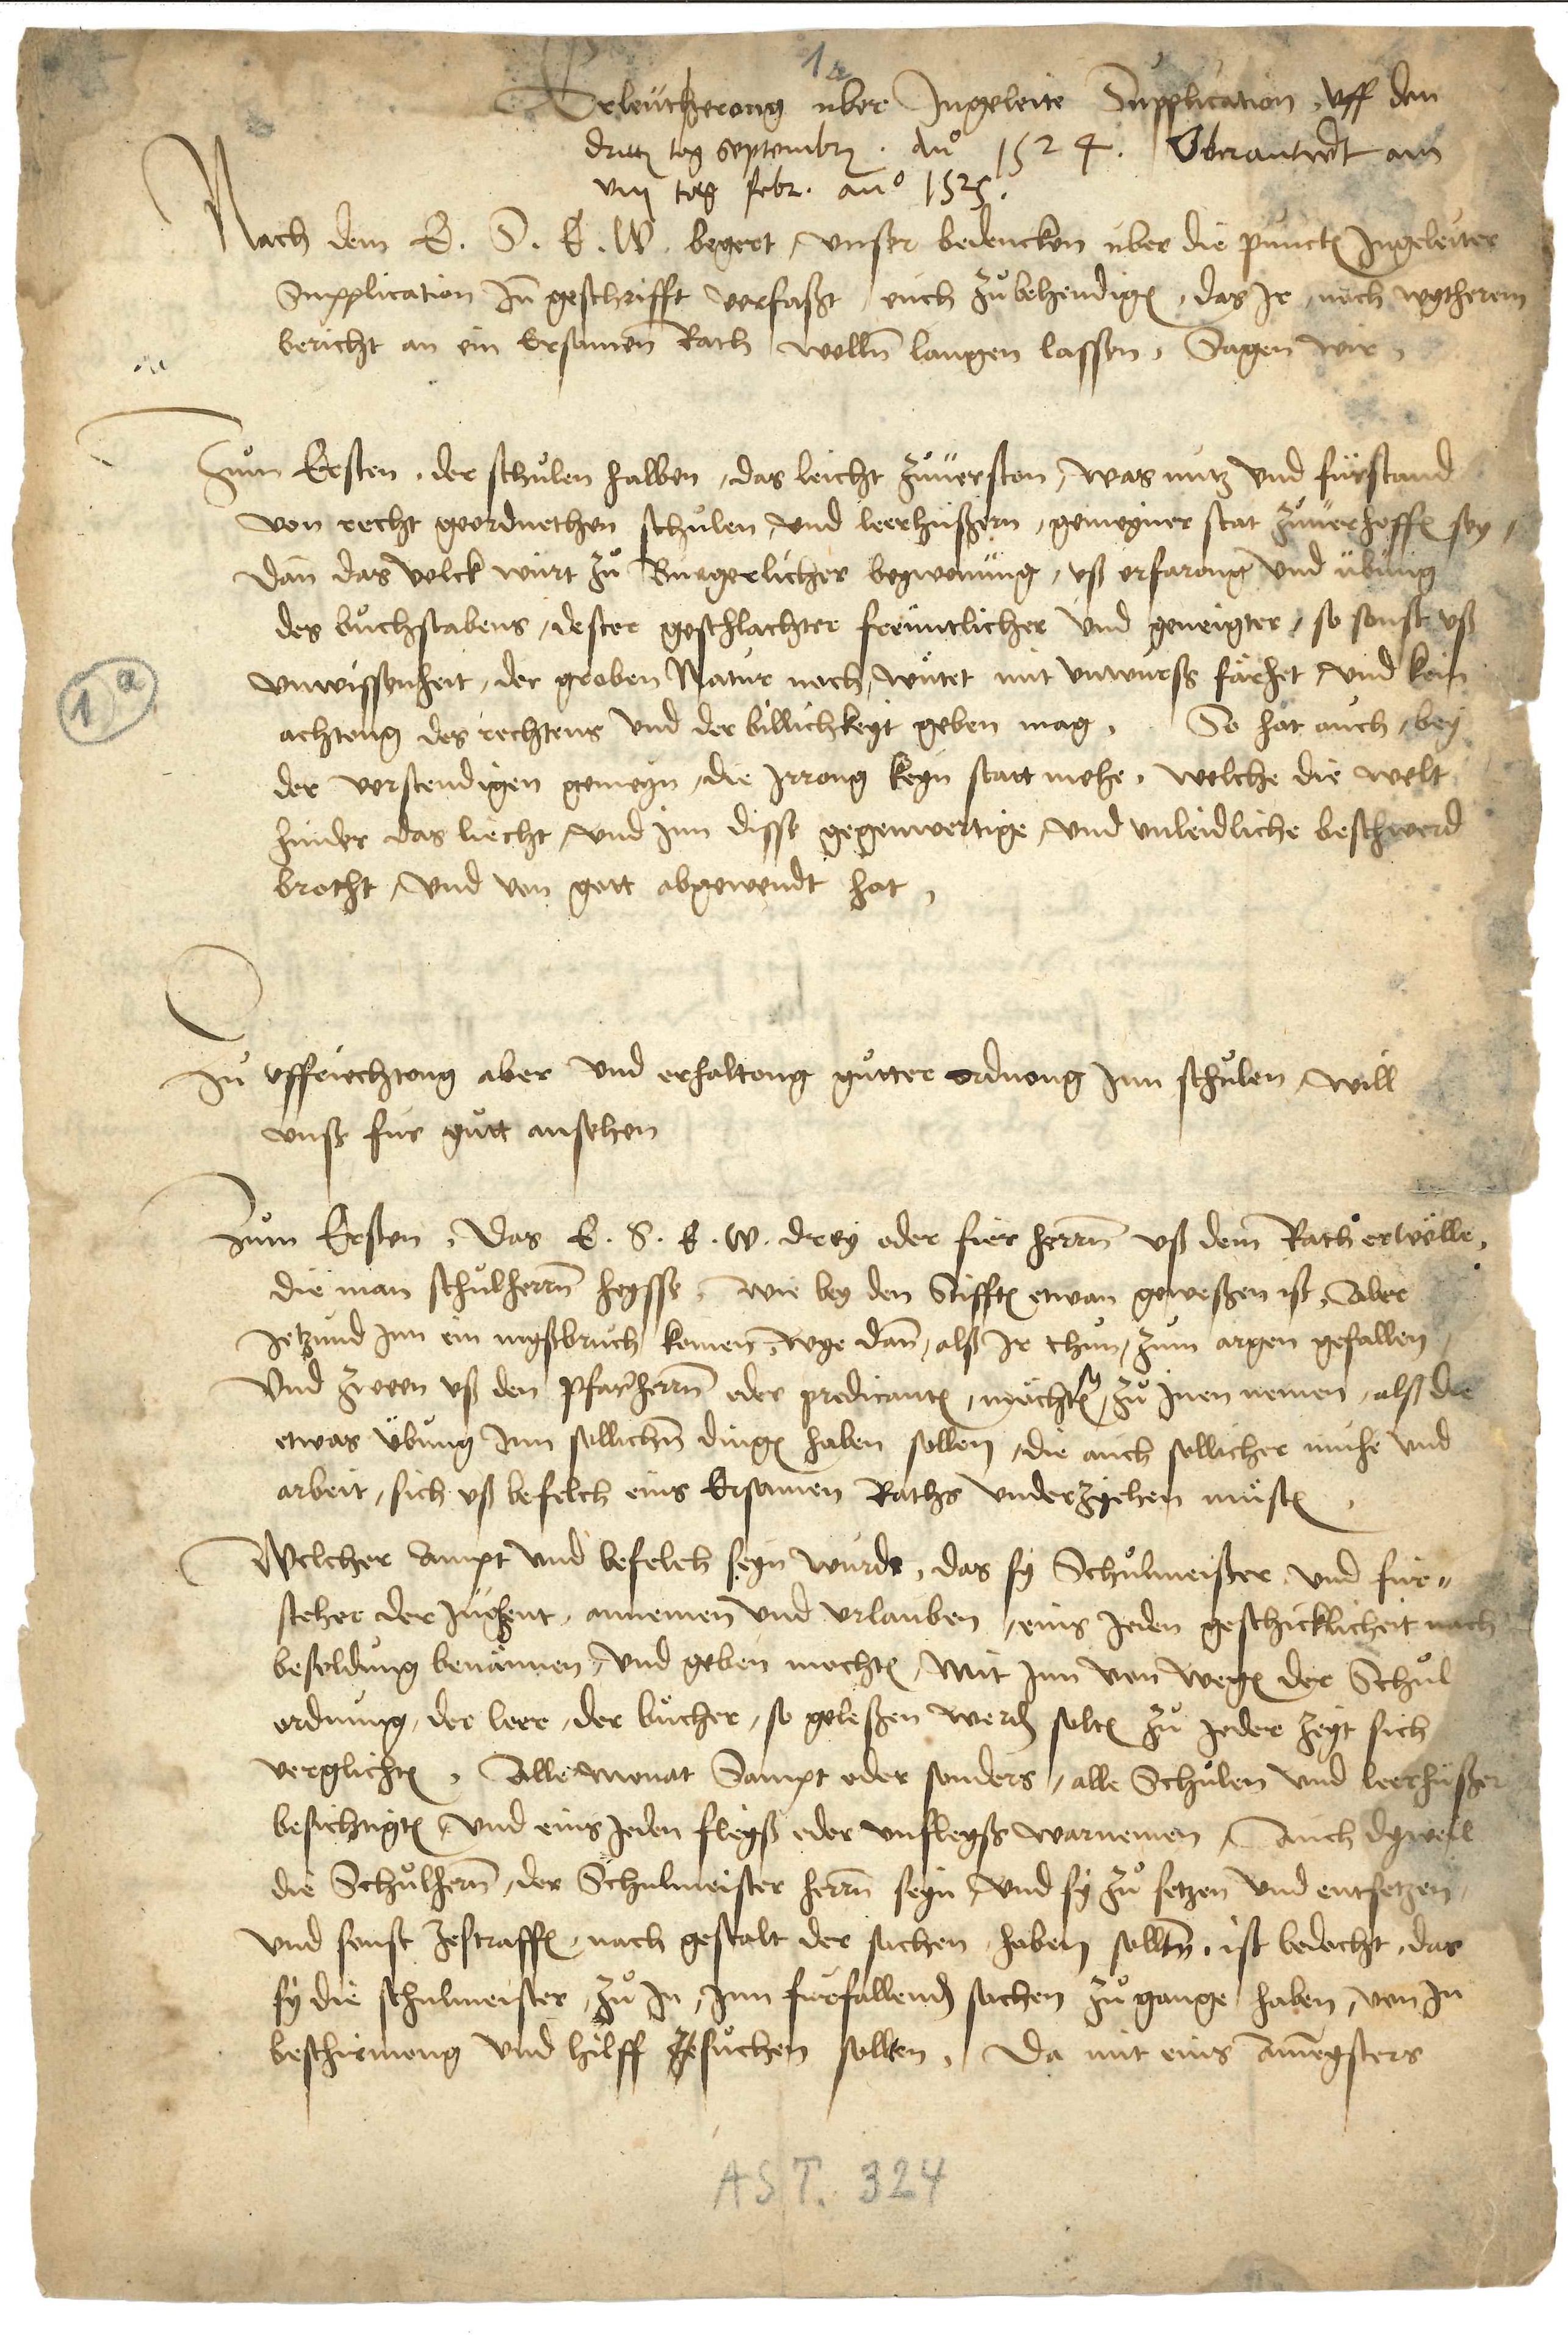 1a
Erleutherong uber Ingeleite Supplication, uff den
dritt tag septembr. Anº 1524. Uberantwt am
viij tag febr. anº 1525.
Nach dem E. S. E. W. begert, unser bedencken uber die punct Ingeleiter
Supplication In geschrifft verfaßt, euch zů behendig, das Ir, noch wytherem
bericht an ein Ersamen Rath wolln langen lassen, Sagen wir,
Zům Ersten, der schůlen halben, das leicht zůuersten, was nutz und fürstand
von recht geordnethen schůlen, und leerhüßern, gemeyner stat zůuerhoff sey,
dan das volck würt zů Burgerlicher beywonüng, uß erfarong und übüng
des bůchstabens, dester geschlachter freüntlicher und geneigter, so sonst uß
unwissenheit, der groben Natur noch, wütet mit unwurß färhet, und kein
achtong des rechtens und der billichkeyt geben mag, So hat auch, bey
der verstendigen gemeyn, die Irrong keyn statt mehe, welche die welt
hinder das liecht, und Inn disse gegenwertige, und unleidliche beschwerd
brocht, und von gott abgewendt hat,
Zů uffriechtong aber und erhaltong gůtter ordnong Inn schůlen, will
unß für gůtt ansehen
Zům Ersten, Das E. S. E. W. drey oder fier herrn uß dem Rath erwölle,
die man schůlherrn heysse, wie bey den Stifft etwan geweßen ist, Aber
Jetzund Inn ein myßbruch komen, wye dan, alß Ir thun, zum argen gefallen,
Und zween uß den Pfarherrn oder predicant, möcht sy zů Inen nemen, alß die
etwas übung Inn sollichen ding haben sollen, die auch sollicher mühe und
arbeit, sich uß befelch eins Ersamen Raths underzyehen müst,
Welcher Ampt und befelch seyn wurde, das sy Schůlmeister und für-
steher der Jugent, annemen und urlauben, eins Jeden geschicklicheit nach
besoldung benännen, und geben mochte, Mit Inn von weg der Schůl
ordnung, der leer, der bücher, so geleßen werd solt zů Jeder zeyt sich
verglicht, Alle monat Sampt oder sonders, alle Schůlen und leerhüßer
besichtigt, und eins Jeden fleyß oder unfleyß warnemen, Auch dyweil
die Schůlherrn, der Schulmeister herrn seyn und sy zů setzen und entsetzen,
und sonst zestraff, nach gestalt der sachen, haben sollten, ist bedocht, das
sy die schulmeister, zů In, Inn fürfallend sachen zůgange haben, von In
beschirmong und hilff zesůchen sollten, Da mit eins
1a
AST. 324